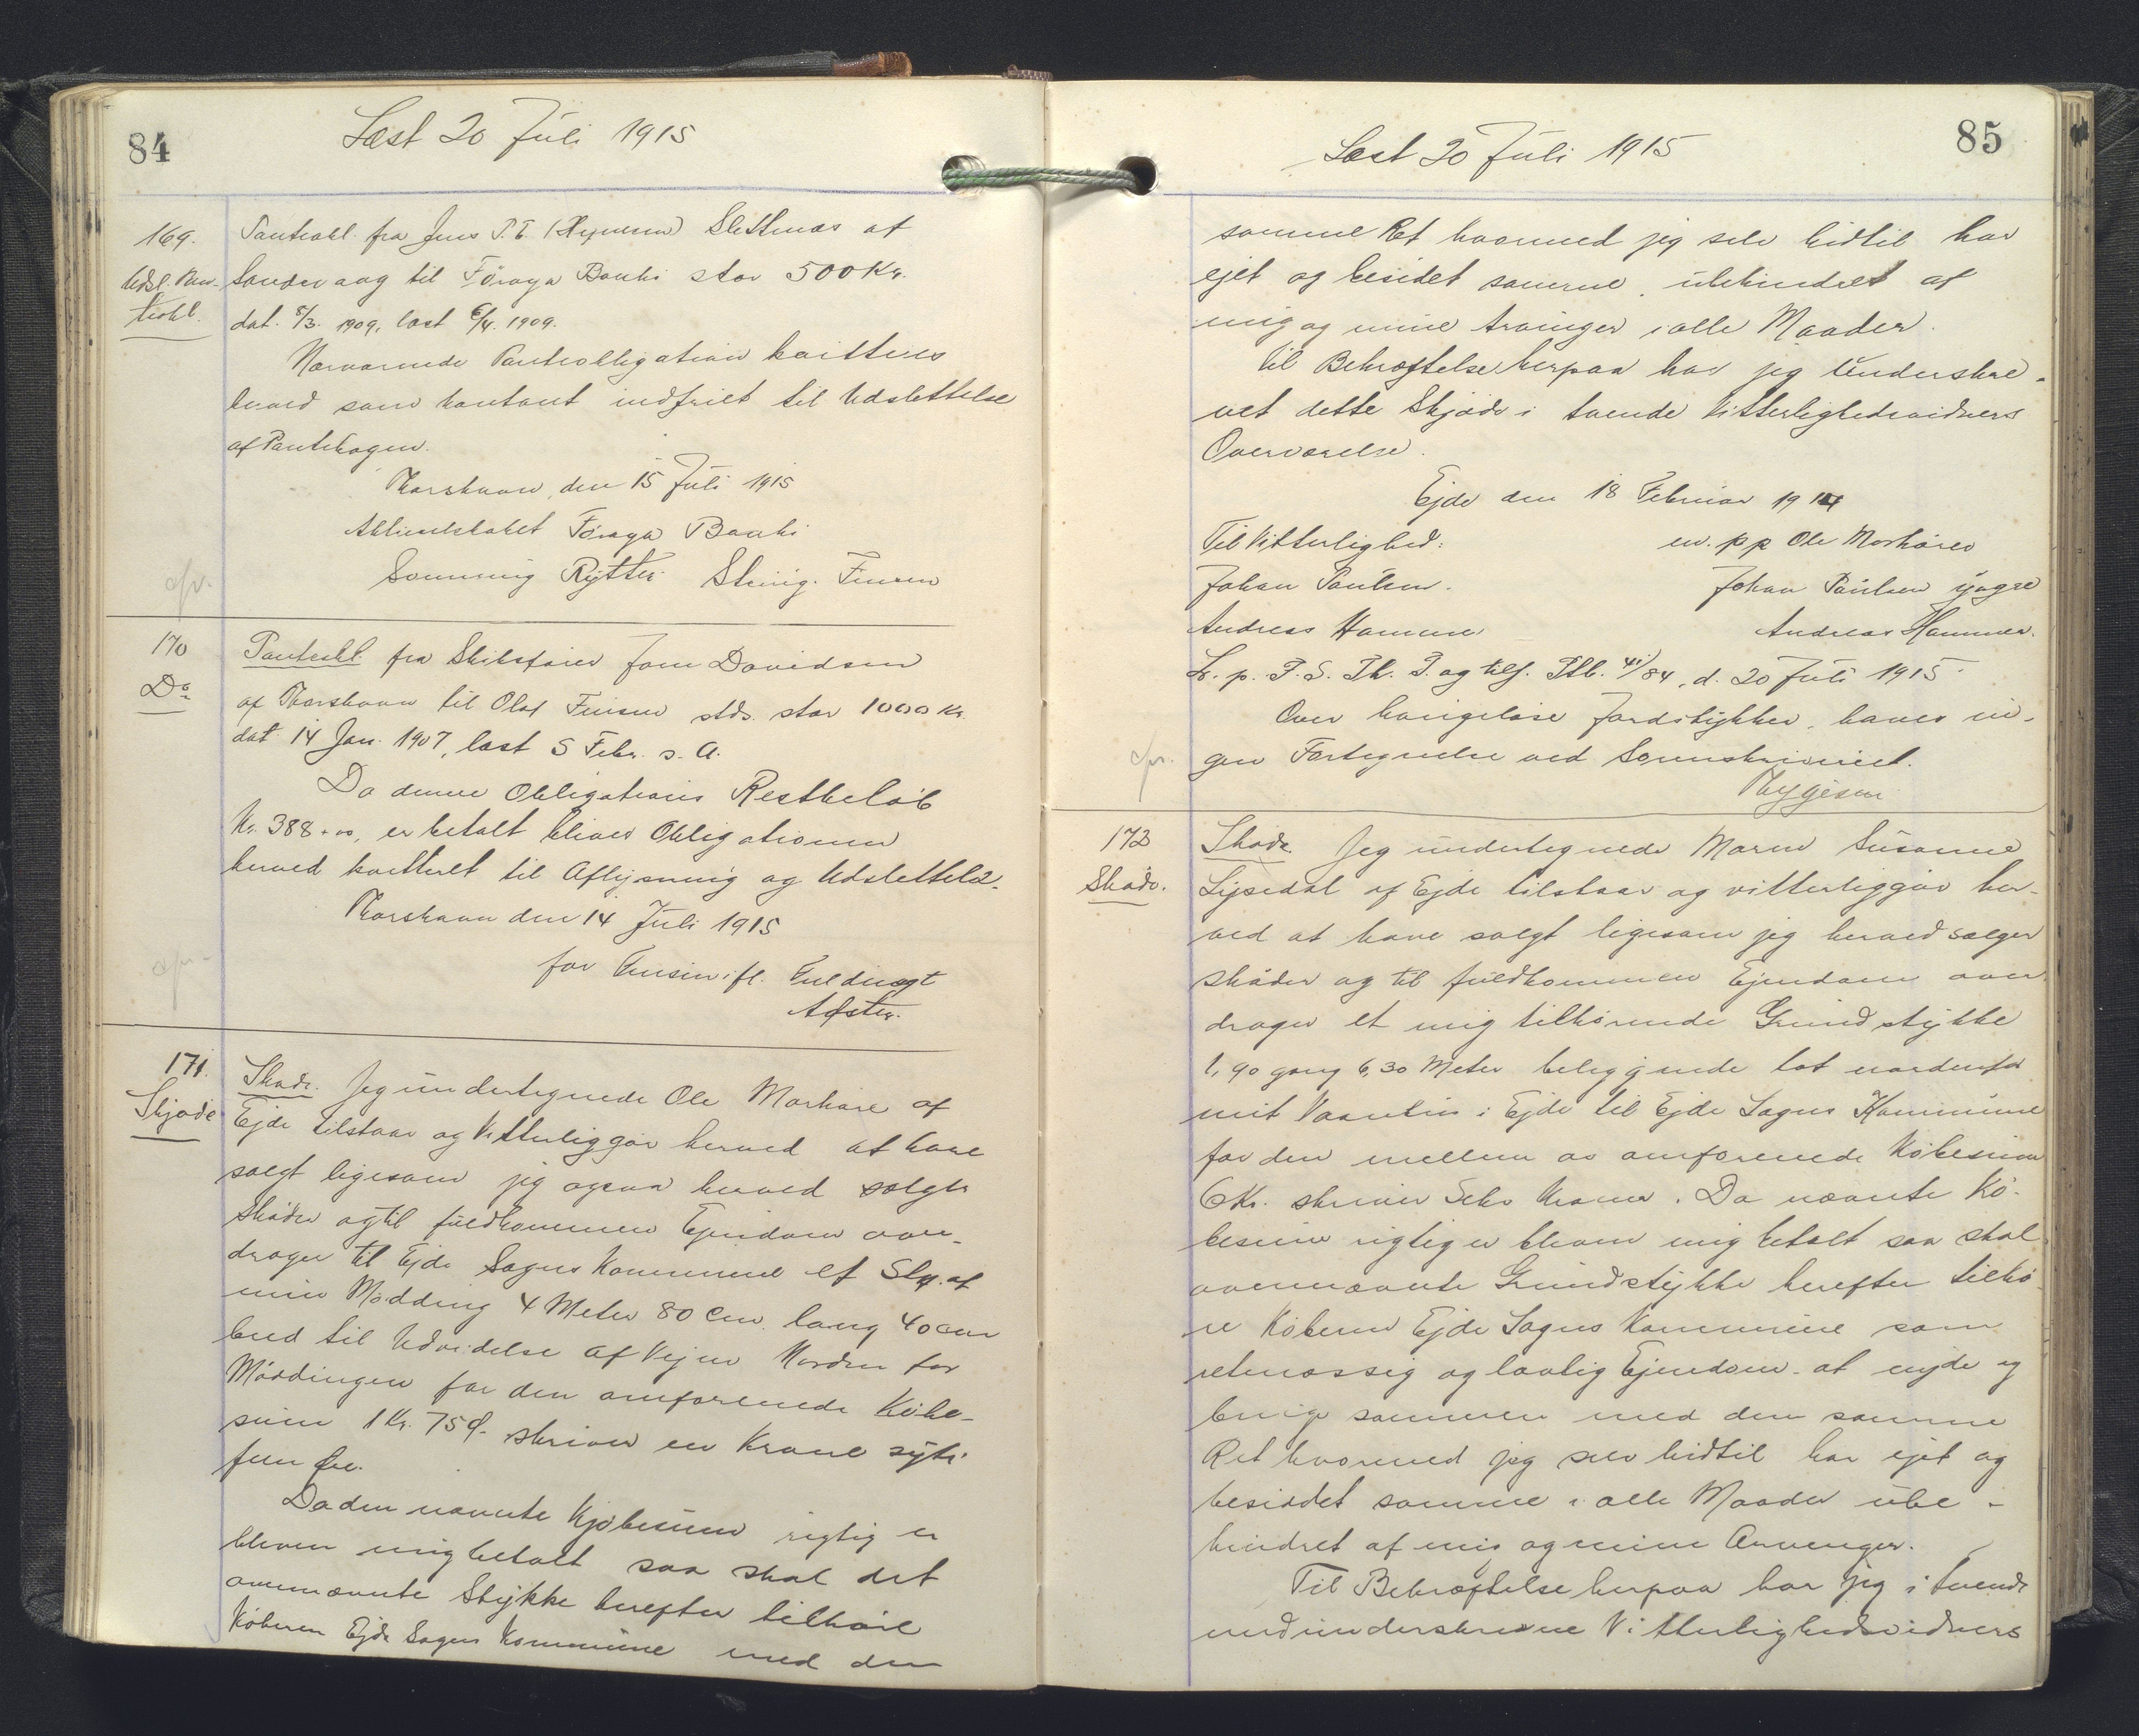 84
Læst 20 Juli 1915
169.
Udsl. Pan-
teobl.
Panteobl. fra Jens P. E. Slettenes af
Sandevaag til Föroya Banki stor 500 Kr.
dat. 8/3. 1909, læst 6/4. 1909.
Nærværende Panteobligation kvitteres
herved som kontant indfriet til Udslettelse
af Pantebogen.
Thorshavn, den 15 Juli 1915
Aktieselskabet Föroya Banki
Rytter. Finsen
cfr.
170
Do
Panteobl. fra Skibsfører Joen Davidsen
af Thorshavn til Olaf Finsen stds. stor 1000 Kr.
dat 14 Jan. 1907, læst 5 Febr. s. A.
Da denne Obligations Restbeløb
Kr. 388 + 00, er betalt bliver Obligationen
herved kvitteret til Aflysning og Udslettelse.
Thorshavn den 14 Juli 1915
for Finsen ifl. Fuldmagt
cfr.
171.
Skjøde
Skøde. Jeg undertegnede Ole Morkøre af
Ejde tilstaar og Vitterliggør herved at have
solgt ligesom jeg ogsaa herved sælger
skøder og til fuldkommen Ejendom over-
drager til Ejde Sogns Kommune et Sty. af
min Mødding 4 Meter 80 Cm. lang 40 cm
bred til Udvidelse af Vejen Norden for
Møddingen for den omforenede Købe-
sum 1 Kr. 75 Ø. skriver en Krone sytti
fem Øre.
Da den nævnte Kjøbesum rigtig er
bleven mig betalt saa skal det
ovennævnte Stykke herefter tilhøre
Køberen Ejde Sogns Kommune med den
85
Læst 20 Juli 1915
samme Ret hvormed jeg selv hidtil har
ejet og besidet samme, ubehindret af
mig og mine Arvinger i alle Maader.
Til Bekræftelse herpaa har jeg underskre-
vet dette Skjøde i tvende Vitterlighedsvidners
Overværelse.
Ejde den 18 Februar 1914
Til Vitterlighed:
m. p p Ole Morkøre
Johan Poulsen.
Johan Poulsen yngre
Andreas Hammer
Andreas Hammer.
L. p. F. S. Th. P. og tilf. Ptb. 41/84, d. 20 Juli 1915.
Over haugeløse Jordstykker, haves in-
gen Fortegnelse ved Sorenskriveriet.
cfr.
172
Skøde.
Skøde. Jeg undertegnede Maren Susanne
Lysedal af Ejde tilstaar og vitterliggør her-
ved at have solgt ligesom jeg herved sælger
skøder og til fuldkommen Ejendom over
drager et mig tilhørende Grundstykke
1,90 gang 6,30 Meter beliggende tæt nordenfor
mit Vaaning i Ejde til Ejde Sogns Kommune
for den mellem os omforenede Købesum
6 Kr. skriver Seks Kroner. Da nævnte Kø-
besum rigtig er bleven mig betalt saa skal
ovennævnte Grundstykke herefter tilhø
re Køberen Ejde Sogns Kommune som
retmæssig og lovlig Ejendom at nyde og
bruge sammen med den samme
Ret hvormed jeg selv hidtil har ejet og
besiddet samme i alle Maader ube-
hindret af mig og mine Arvenger.
Til Bekræftelse herpaa har jeg i tvende
medunderskrevne Vitterlighedsvidners